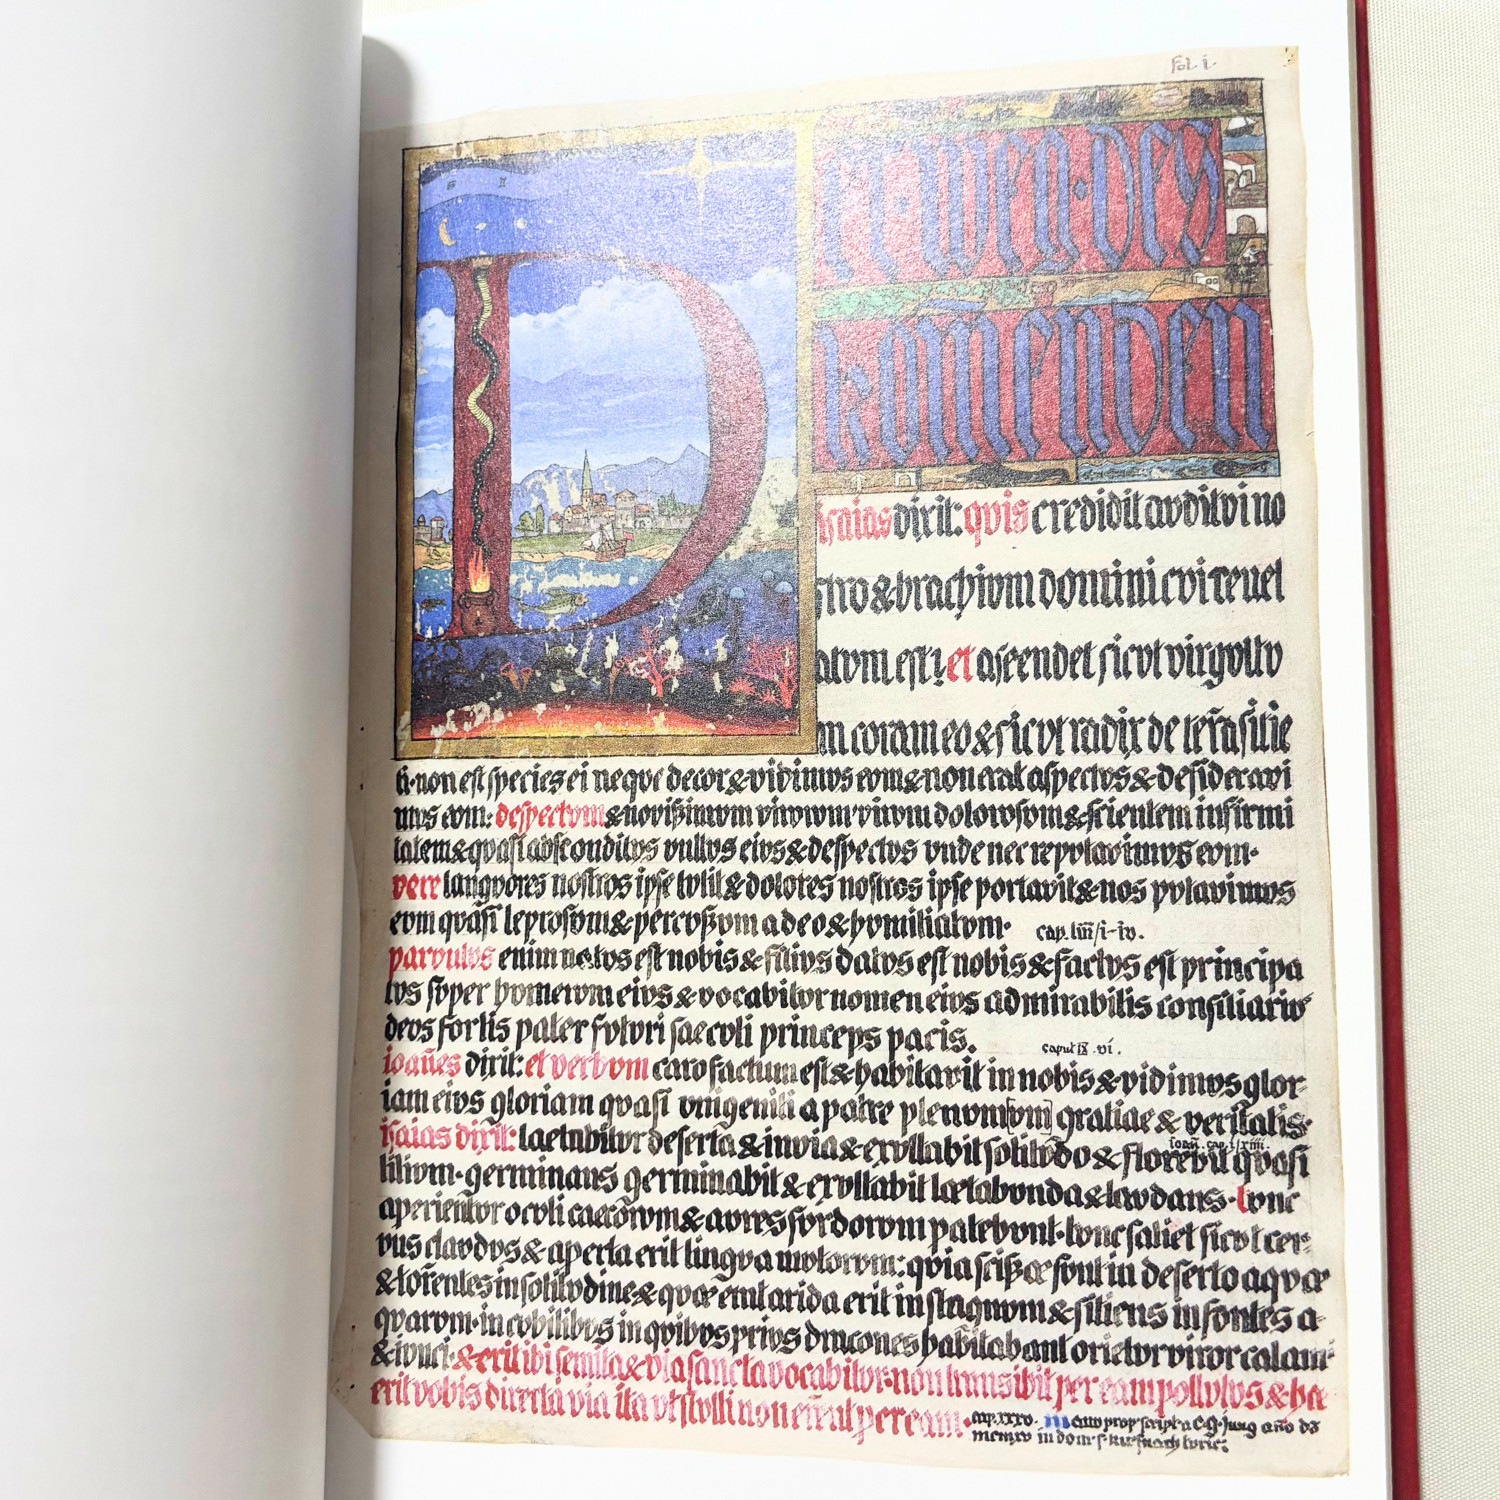 Fol. i.
Der·wen·des
komēnden
isaias dixit: quis credidit auditui no
stro & brachium domini cui reuel
atum est? et ascendet sicut virgultu
m coram eo & sicut radix de terra sitie
ti· non est species ei neque decor & vidimus eum & non erat aspectus & desideravi
mus eum: despectum & novissimum virorum virum dolorosum & scientem infirmi
tatem & quasi absconditus vultus eius & despectus unde nec reputavimus eum·
vere languores nostros ipse tulit & dolores nostros ipse portavit & nos putavimus
eum quasi leprosum & percussum a deo & humiliatum· cap. liii/i-iv.
parvulus enim natus est nobis & filius datus est nobis & factus est principa
tus super humerum eius & vocabitur nomen eius admirabilis consiliarius
deus fortis pater futuri saeculi princeps pacis. caput ix .vi.
ioañes dixit: et verbum caro factum est & habitavit in nobis & vidimus glor-
iam eius gloriam quasi unigeniti a patre plenum[um] gratiae & veritatis·
ioañ. cap. i/xiiii.
isaias dixit: laetabitur deserta & invia & exultabit solitudo & florebit quasi
lilium· germinans germinabit & exultabit laetabunda & laudans· tunc
aperientur oculi caecorum & aures surdorum patebunt· tunc saliet sicut cer-
vus claudus & aperta erit lingua mutorum: quia scissae sunt in deserto aquae
& torrentes in solitudine & quae erat arida erit in stagnum & sitiens in fontes a-
quarum· in cubilibus in quibus prius dracones habitabant orietur viror calami
& iunci· & erit ibi semita & via sancta vocabitur· non transibit per eam pollutus & hæ
erit vobis directa via ita ut stulti non errent per eam· cap. xxxv. manu propr script a C.G. Jung anõ dõ
mcmxv in domu s. kusnach turic: